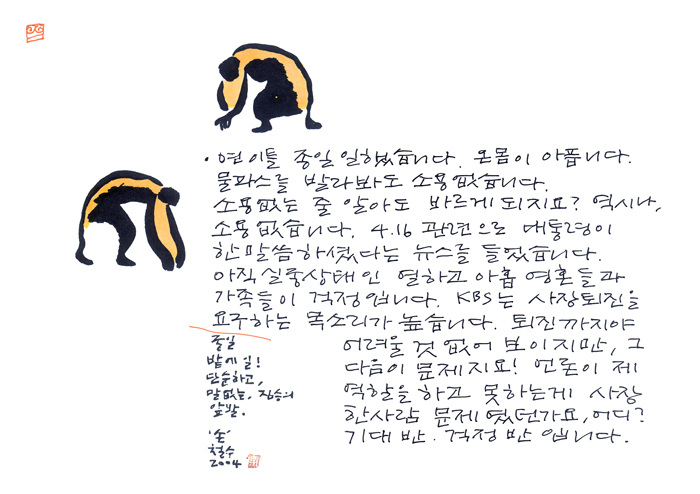 · 연 이틀 종일 일했습니다. 온몸이 아픕니다.
물파스를 발라봐도 소용없습니다.
소용없는 줄 알아도 바르게 되지요? 역시나,
소용없습니다. 4.16 관련으로 대통령이
한 말씀 하셨다는 뉴스를 들었습니다.
아직 실종상태인 열하고 아홉 영혼들과
가족들이 걱정입니다. KBS는 사장퇴진을
요구하는 목소리가 높습니다. 퇴진까지야
어려울 것 없어 보이지만, 그
다음이 문제지요! 언론이 제
역할을 하고 못하는게 사장
한사람 문제였던가요, 어디?
기대 반·걱정 반입니다.
종일
밭에 일!
단순하고,
말없는, 짐승의
앞발.
'손'
철수
2004